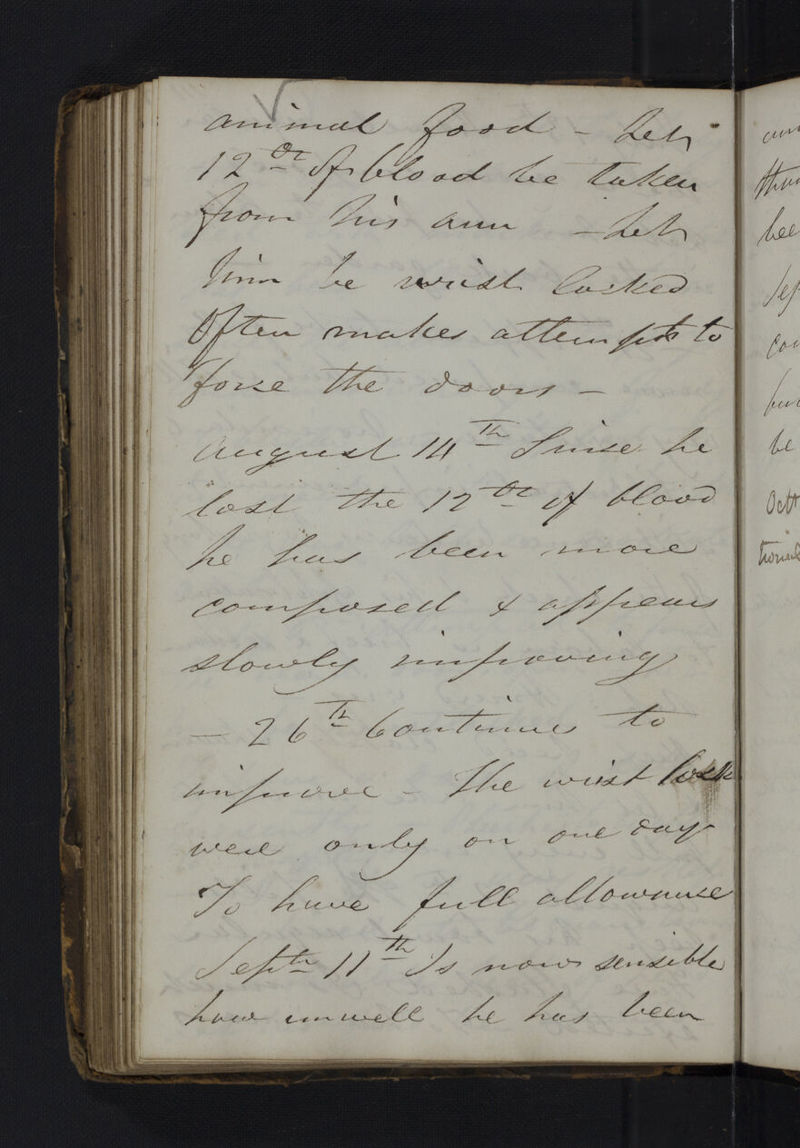 animal food - Let
12 oz of blood be taken
from his arm - Let
him be wrist locked
Often makes attempts to
force the doors -
August 14th Since he
lost the 12 oz of blood
he has been more
composed & appears
slowly improving
- 26th Continues to
improve - The wrist locks
were only on one day
To have full allowance
Septr 11th Is now sensible
how unwell he has been
be
Octr